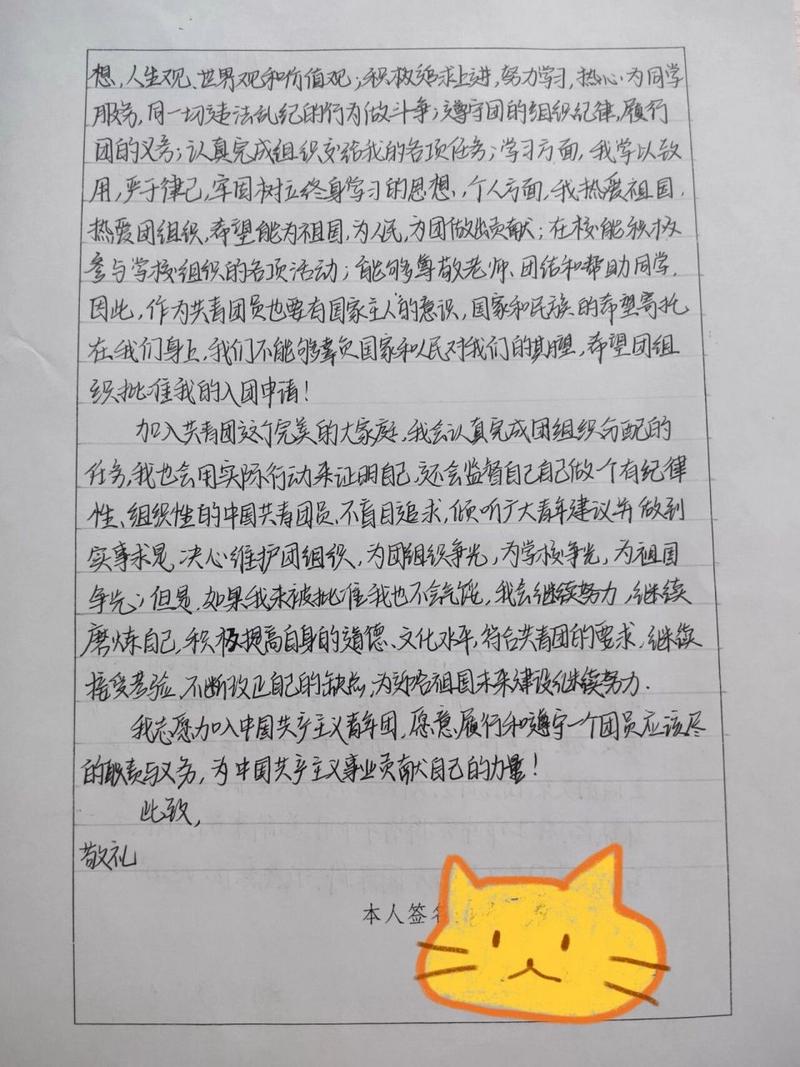 想,人生观、世界观和价值观;积极追求上进,努力学习,热心为同学
服务,同一切违法乱纪的行为做斗争;遵守团的组织纪律,履行
团的义务;认真完成组织交给我的各项任务;学习方面,我学以致
用,严于律己,牢固树立终身学习的思想,个人方面,我热爱祖国,
热爱团组织,希望能为祖国,为人民,为团做出贡献;在校能积极
参与学校组织的各项活动;能够尊敬老师、团结和帮助同学.
因此,作为共青团员也要有国家主人的意识,国家和民族的希望寄托
在我们身上,我们不能够辜负国家和人民对我们的期望,希望团组
织批准我的入团申请!
加入共青团这个完美的大家庭,我会认真完成团组织分配的
任务,我也会用实际行动来证明自己,还会监督自己自己做一个有纪律
性、组织性的中国共青团员.不盲目追求,倾听广大青年建议并做到
实事求是.决心维护团组织、为团组织争光,为学校争光,为祖国
争光;但是,如果我未被批准我也不会气馁,我会继续努力,继续
磨炼自己,积极提高自身的道德、文化水平,符合共青团的要求,继续
接受考验,不断改正自己的缺点,为祖国未来建设继续努力.
我志愿加入中国共产主义青年团,愿意履行和遵守一个团员应该尽
的职责与义务,为中国共产主义事业贡献自己的力量!
此致,
敬礼
本人签名